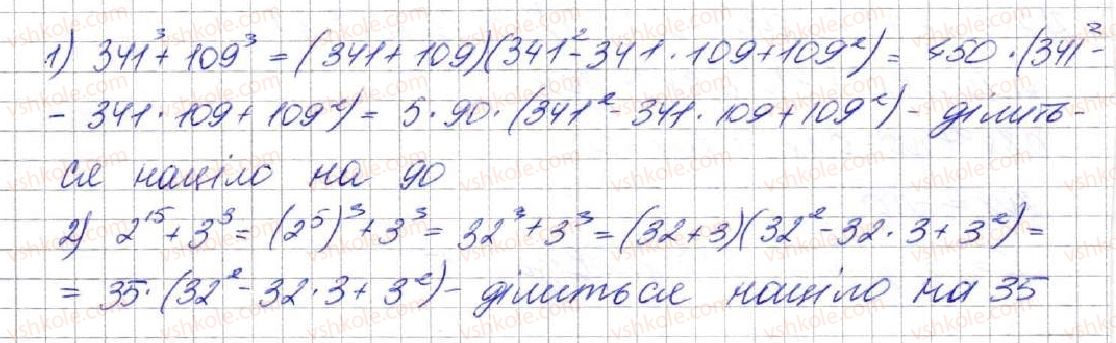 1) 341³ + 109³ = (341 + 109)(341² - 341 · 109 + 109²) = 450 · (341² -
- 341 · 109 + 109²) = 5 · 90 · (341² - 341 · 109 + 109²) - ділить-
ся націло на 90
2) 2¹⁵ + 3³ = (2⁵)³ + 3³ = 32³ + 3³ = (32 + 3)(32² - 32 · 3 + 3²) =
= 35 · (32² - 32 · 3 + 3²) - ділиться націло на 35